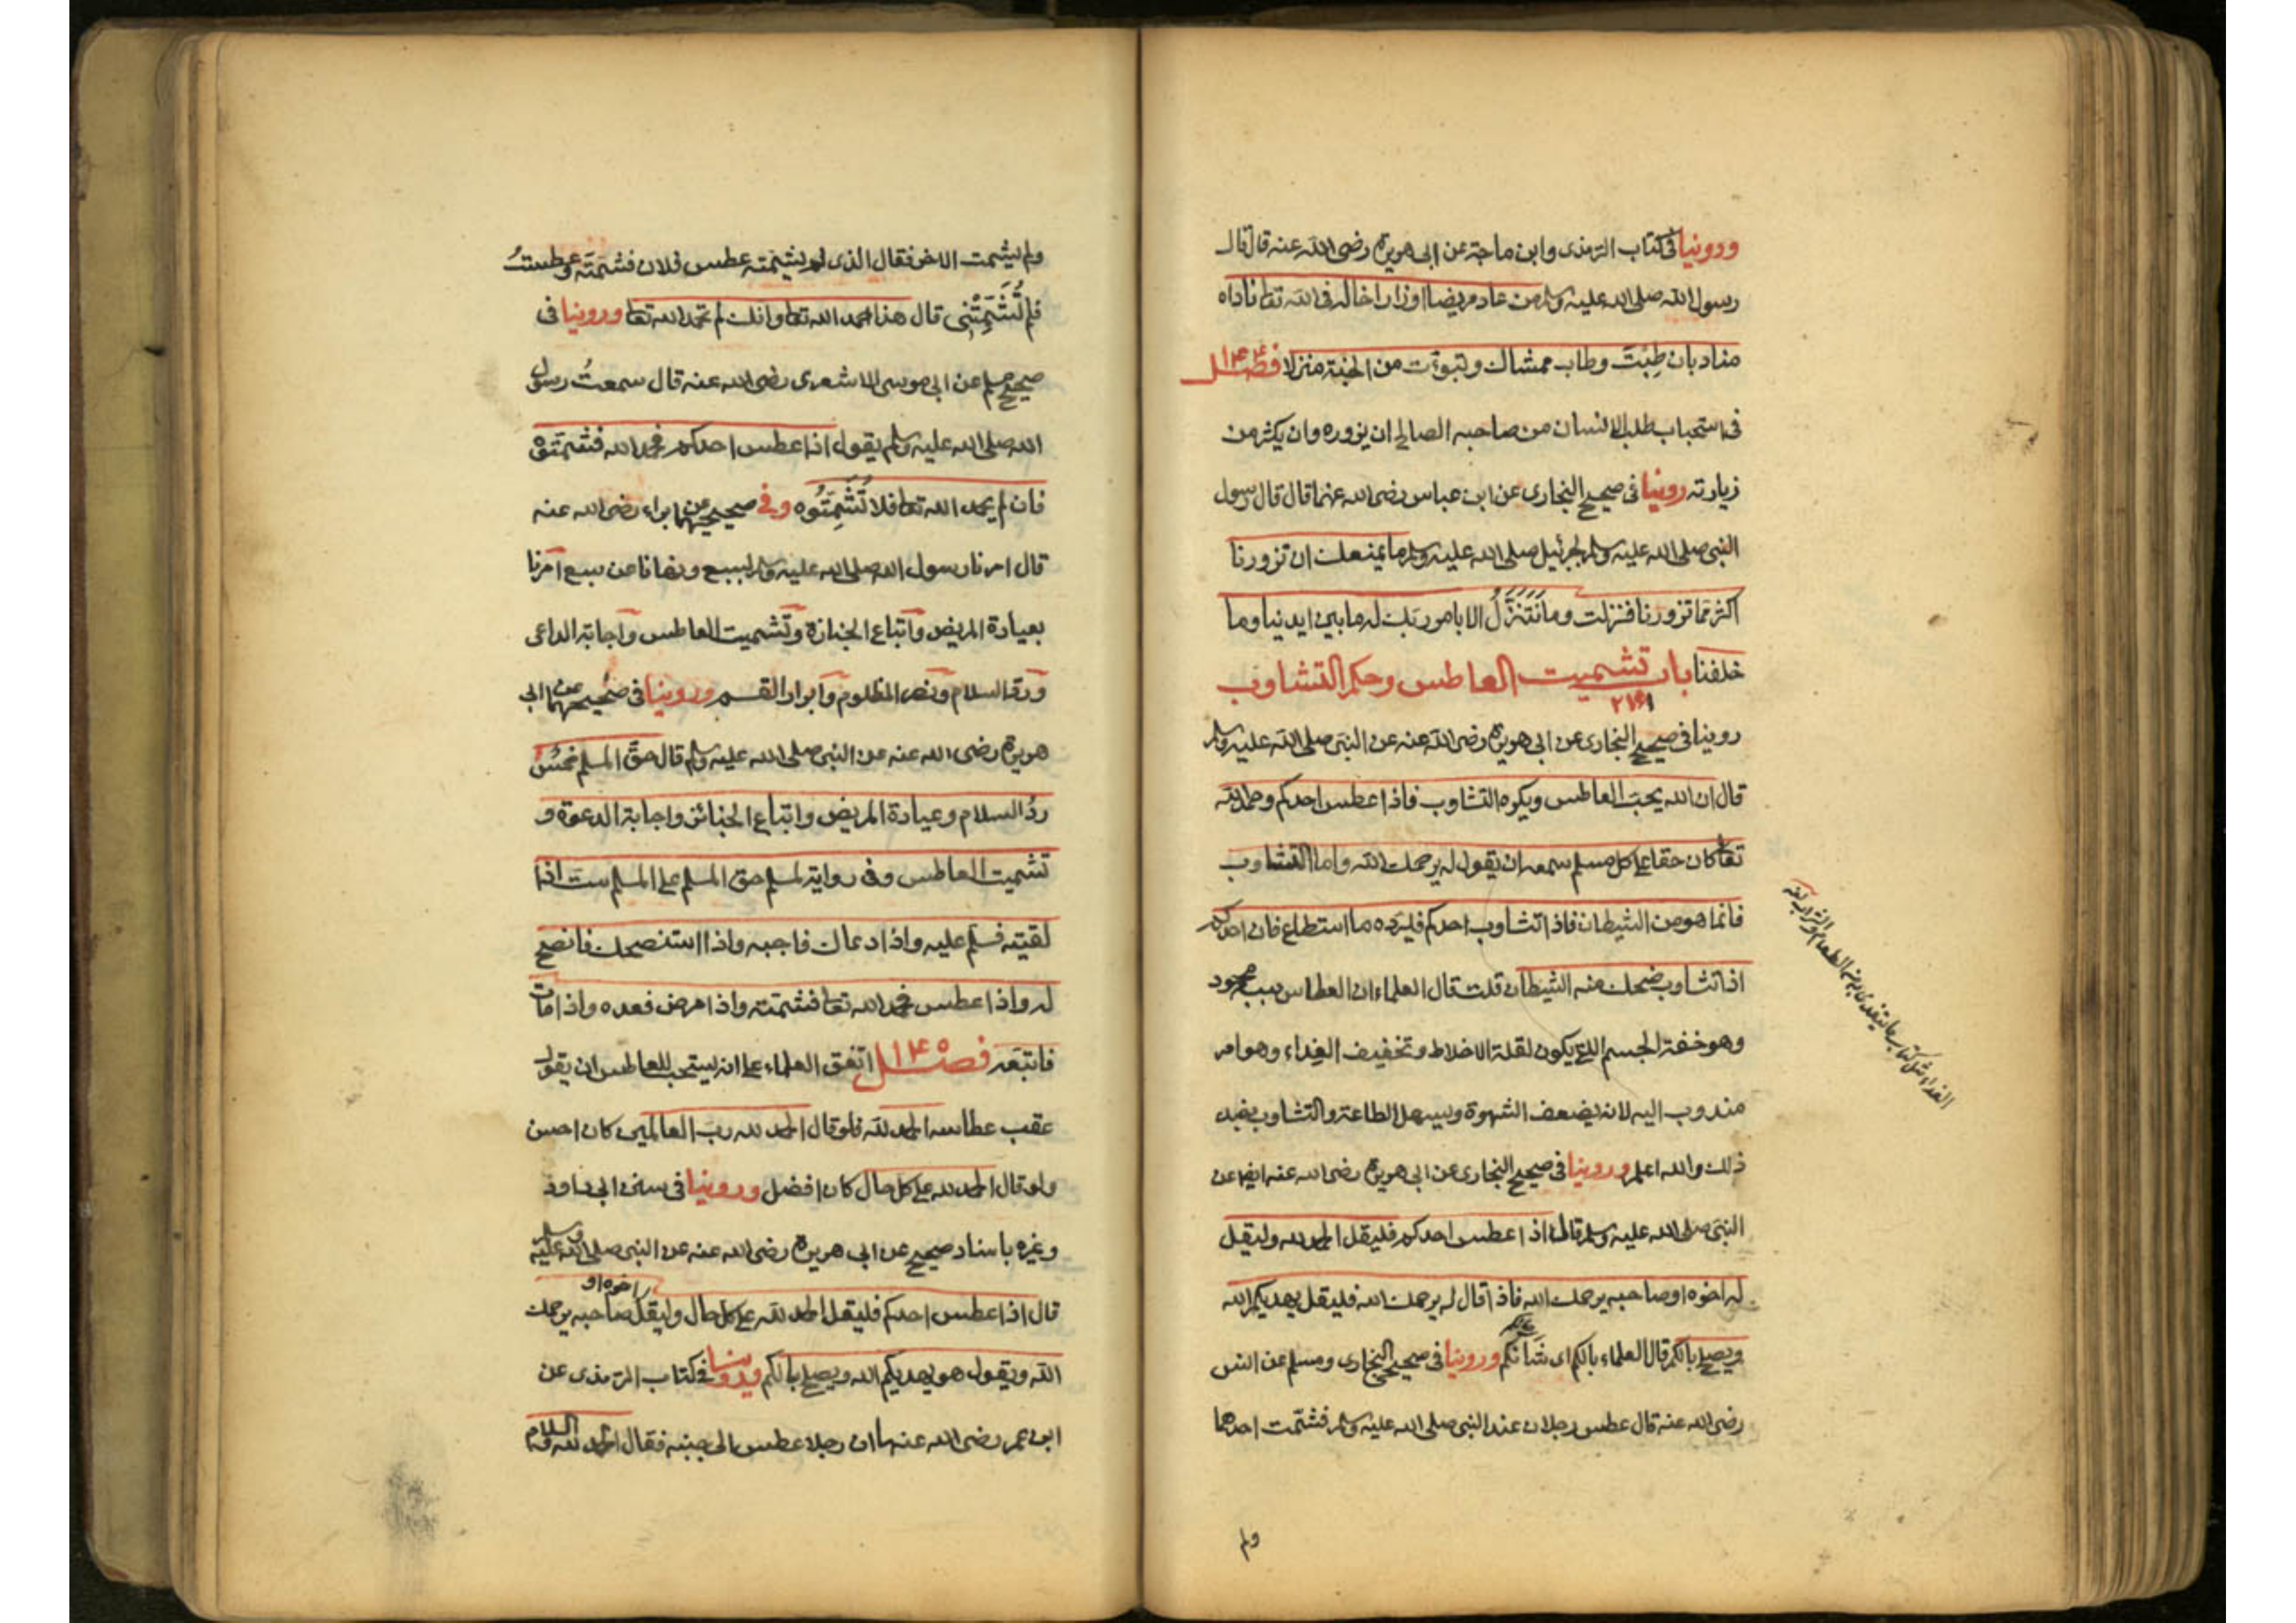 وروينا في كتاب الترمذى وابن ماجة عن ابى هريرة رضى الله عنه قال قال
رسول الله صلى الله عليه وسلم من عاد مريضا او زار اخا له فى الله تعا ناداه
مناد بان طِبْتَ وطاب ممشاك وتبوّءت من الجنة منزلا فصل ١٤٤
فى استحباب طلب الانسان من صاحبه الصالح ان يزوره وان يكثر من
زيارته روينا فى صحيح البخارى عن ابن عباس رضى الله عنهما قال قال رسول
النبى صلى الله عليه وسلم لجبرئيل صلى الله عليه وسلم ما يمنعك ان تزورنا
اكثر مما تزورنا فنزلت وما نَتَنَزَّلُ الا بامر ربك له ما بين ايدينا وما
خلفنا باب تشميت العاطس وحكم التشاوب
٢٤١
روينا فى صحيح البخارى عن ابى هريرة رضى الله عنه عن النبى صلى الله عليه وسلم
قال ان الله يحب العاطس ويكره التشاوب فاذا عطس احدكم وحمد الله
تعا كان حقا على كل مسلم سمعه ان يقول له يرحمك الله واما التشاوب
فانما هو من الشيطان فاذا تشاوب احدكم فليرده ما استطاع فان احدكم
اذا تشاوب ضحك منه الشيطان قلت قال العلماء ان العطاس سبب محمود
وهو خفة الجسم التى يكون لقلة الاخلاط وتخفيف الغذاء وهو امر
مندوب اليه لانه يضعف الشهوة ويسهل الطاعة والتشاوب بضد
ذلك والله اعلم وروينا فى صحيح البخارى عن ابى هريرة رضى الله عنه ايضا عن
النبى صلى الله عليه وسلم قال اذا عطس احدكم فليقل الحمد لله وليقل
له اخوه او صاحبه يرحمك الله فاذا قال له يرحمك الله فليقل يهديكم الله
ويصلح بالكم قال العلماء بالكم اى شَأنكم وروينا فى صحيح البخارى ومسلم عن انس
رضى الله عنه قال عطس رجلان عند النبى صلى الله عليه وسلم فشمّت احدهما
ولم
ولم يشمت الاخر فقال الذى لم يشمته عطس فلان فشمته وعطستُ
فلم تُشَمِّتْنِى قال هذا حمد الله تعا وانك لم تحمد الله تعا وروينا فى
صحيح مسلم عن ابى موسى الاشعرى رضى الله عنه قال سمعتُ رسول
الله صلى الله عليه وسلم يقول اذا عطس احدكم فحمد الله فشمتوه
فان لم يحمد الله تعا فلا تُشَمِّتُوه وفى صحيحيهما عن البراء رضى الله عنه
قال امرنا رسول الله صلى الله عليه وسلم بسبع ونهانا عن سبع امرنا
بعيادة المريض واتباع الجنازة وتشميت العاطس واجابة الداعى
ورد السلام ونصر المظلوم وابرار القسم وروينا فى صحيحيهما عن ابى
هريرة رضى الله عنه عن النبى صلى الله عليه وسلم قال حق المسلم خمسٌ
ردُ السلام وعيادة المريض واتباع الجنائز واجابة الدعوة و
تشميت العاطس وفى رواية لمسلم حق المسلم على المسلم ست اذا
لقيته فسلم عليه واذا دعاك فاجبه واذا استنصحك فانصح
له واذا عطس فحمد الله تعا فشمته واذا مرض فعده واذا مات
فاتبعه فصل ١٤٥ اتفق العلماء على انه يستحب للعاطس ان يقول
عقب عطاسه الحمد لله فلو قال الحمد لله رب العالمين كان احسن
ولو قال الحمد لله على كل حال كان افضل وروينا فى سنن ابى داود
وغيره باسناد صحيح عن ابى هريرة رضى الله عنه عن النبى صلى الله عليه وسلم
قال اذا عطس احدكم فليقل الحمد لله على كل حال وليقل اخوه او صاحبه يرحمك
الله ويقول هو يهديكم الله ويصلح بالكم وروينا فى كتاب الترمذى عن
ابن عمر رضى الله عنهما ان رجلا عطس الى جنبه فقال الحمد لله والسلام